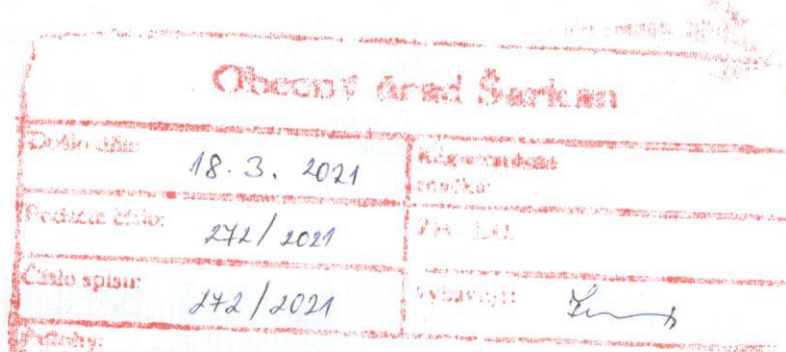 Obecný úrad Šarkan
Došlo dňa: 18. 3. 2021
Registratúrna
značka:
Podacie číslo: 272/2021
Číslo spisu: 272/2021
Vybavuje:
Prílohy: